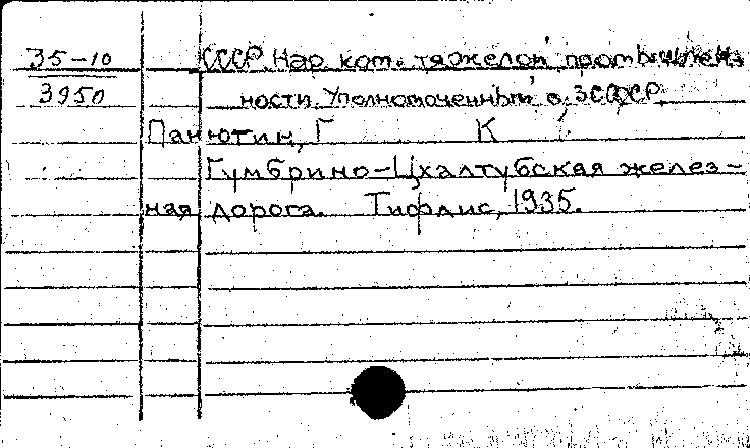 35-10 СССР. Нар. ком. тяжелой промышлен-
3950 ности. Уполномоченный в ЗСФСР.
Панютин, Г К
Гумбрино-Цхалтубская желез-
ная дорога. Тифлис, 1935.